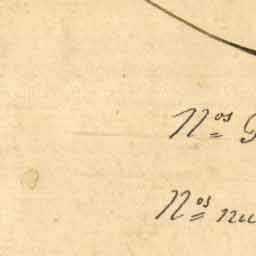 N.os
N.os nu